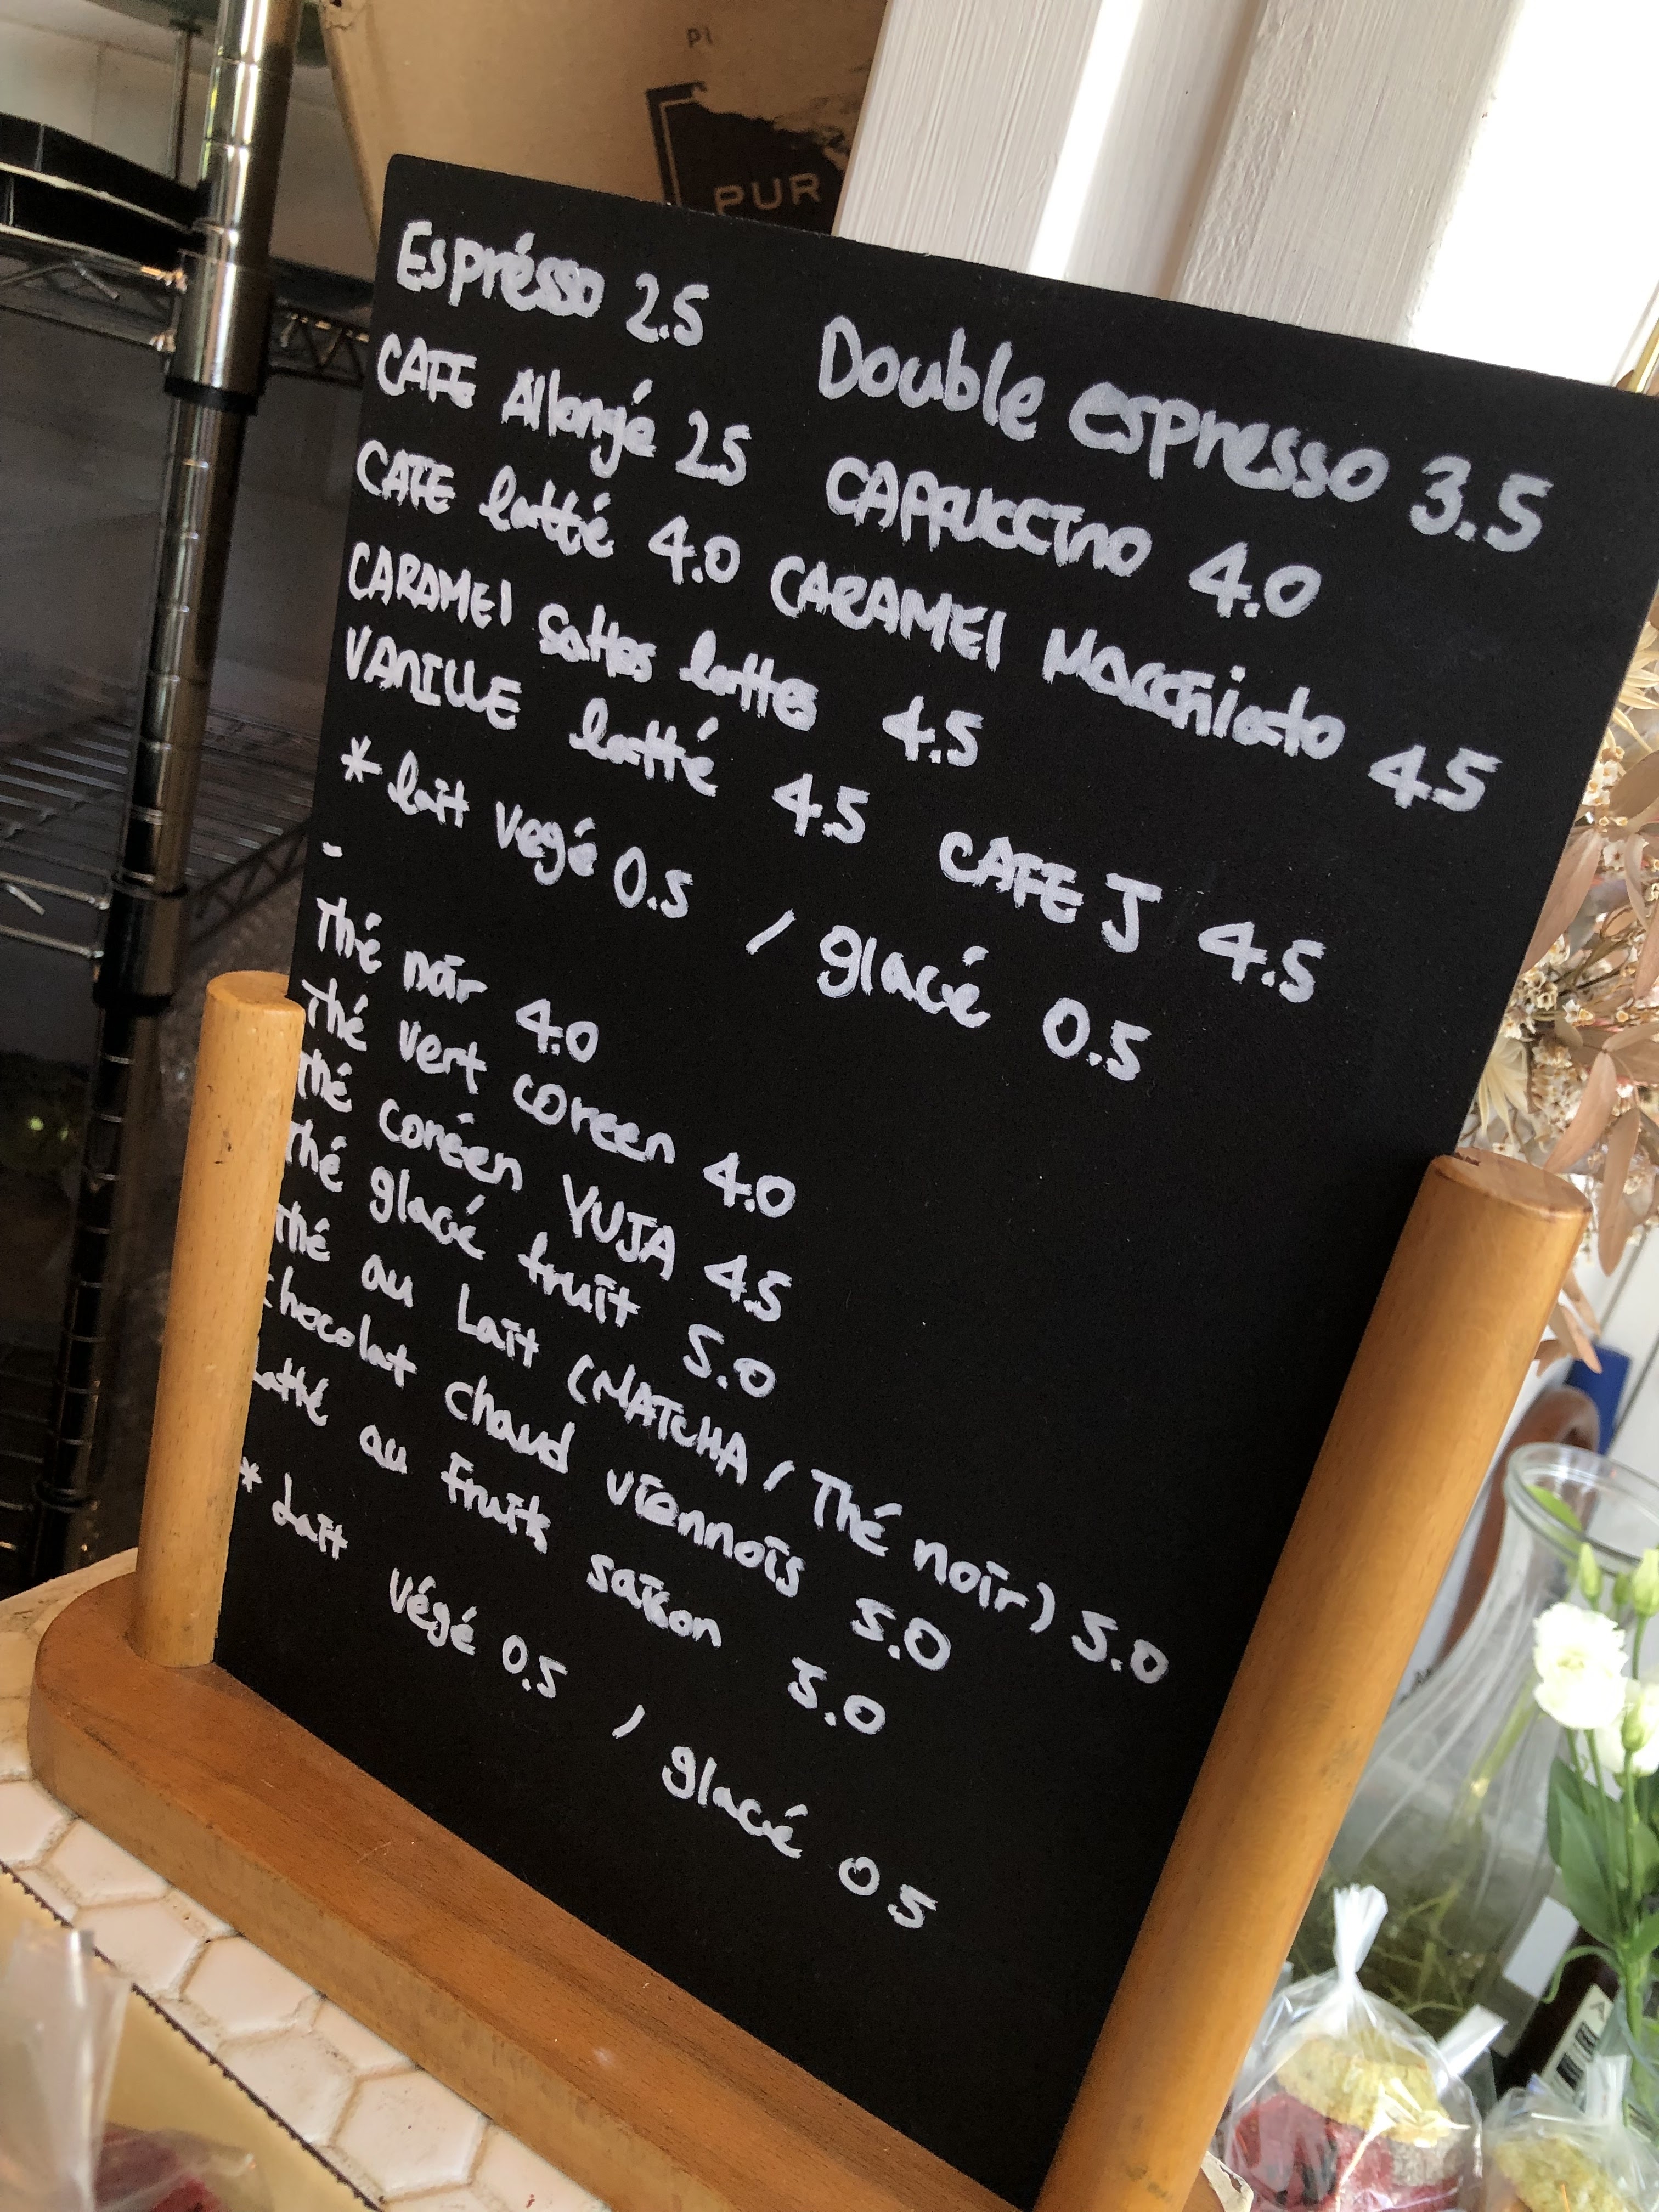 PI
PUR
Esprésso 2.5 Double espresso 3.5
CAFE Allongé 2.5 CAPPUCCINO 4.0
CAFE latté 4.0 CARAMEL Macchiato 4.5
CARAMEL Saltes lattes 4.5
VANILLE latté 4.5 CAFE J 4.5
* lait végé 0.5 / glacé 0.5
-
Thé noir 4.0
Thé vert coreen 4.0
Thé coréen YUJA 4.5
Thé glacé fruit 5.0
Thé au Lait (MATCHA / Thé noir) 5.0
chocolat chaud viennois 5.0
Latté au Fruits saison 5.0
* Lait végé 0.5 / glacé 0.5